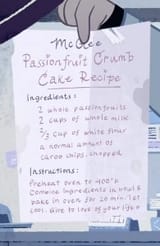 McGee
Passionfruit Crumb
Cake Recipe
Ingredients:
2 whole passionfruits
2 cups of whole milk
2/3 cup of white flour
a normal amount of
carob chips, chopped
Instructions:
Preheat oven to 400°
Combine ingredients in bowl &
bake in oven for 20 min. let
cool. Give to love of your life